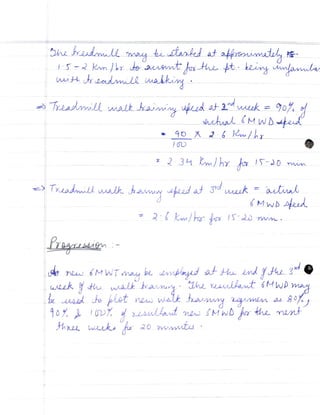 The treadmill may be started at approximately
1.5 - 2 km/hr to account for the pt. being unfamiliar
with treadmill walking.
=> Treadmill walk training speed at 2nd week = 90% of
actual 6MWD speed
= 90 X 2.6 Km/hr
100
= 2.34 Km/hr for 15-20 min
=> Treadmill walk training speed at 3rd week = actual
6MWD speed.
= 2.6 Km/hr for 15-20 min.
Progression :-
A new 6MWT may be employed at the end of the 3rd
week of the walk training. The resultant 6MWD may
be used to plot new walk training regimen as 80%,
90% & 100% of resultant new 6MWD for the next
three weeks for 20 minutes.